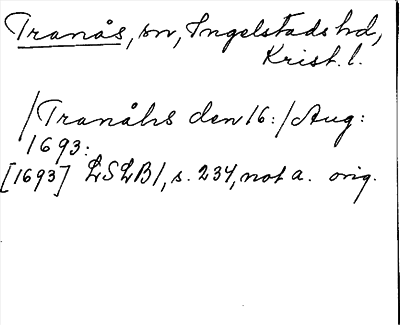 Tranås, sn, Ingelstads hd,
Krist. l.
/Tranåhs den 16:/Aug:
1693:
[1693] LSLB1, s. 234, not a. orig.